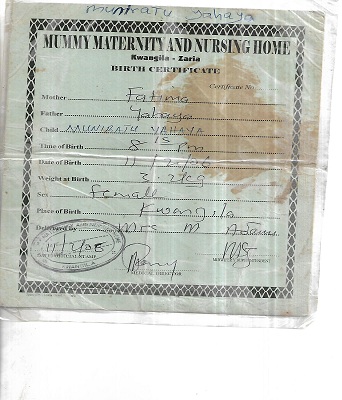 muniratu yahaya
MUMMY MATERNITY AND NURSING HOME
Kwangila - Zaria
BIRTH CERTIFICATE
Certificate No.
Mother Fatima
Father Yahaya
Child MUNIRATU YAHAYA
Time of Birth 8 15 pm
Date of Birth
Weight at Birth 3.2kg
Sex Female
Place of Birth Kwangila
Delivered by Mrs M Adamu
DATE/OFFICIAL STAMP
KWANGILA
MEDICAL DIRECTOR